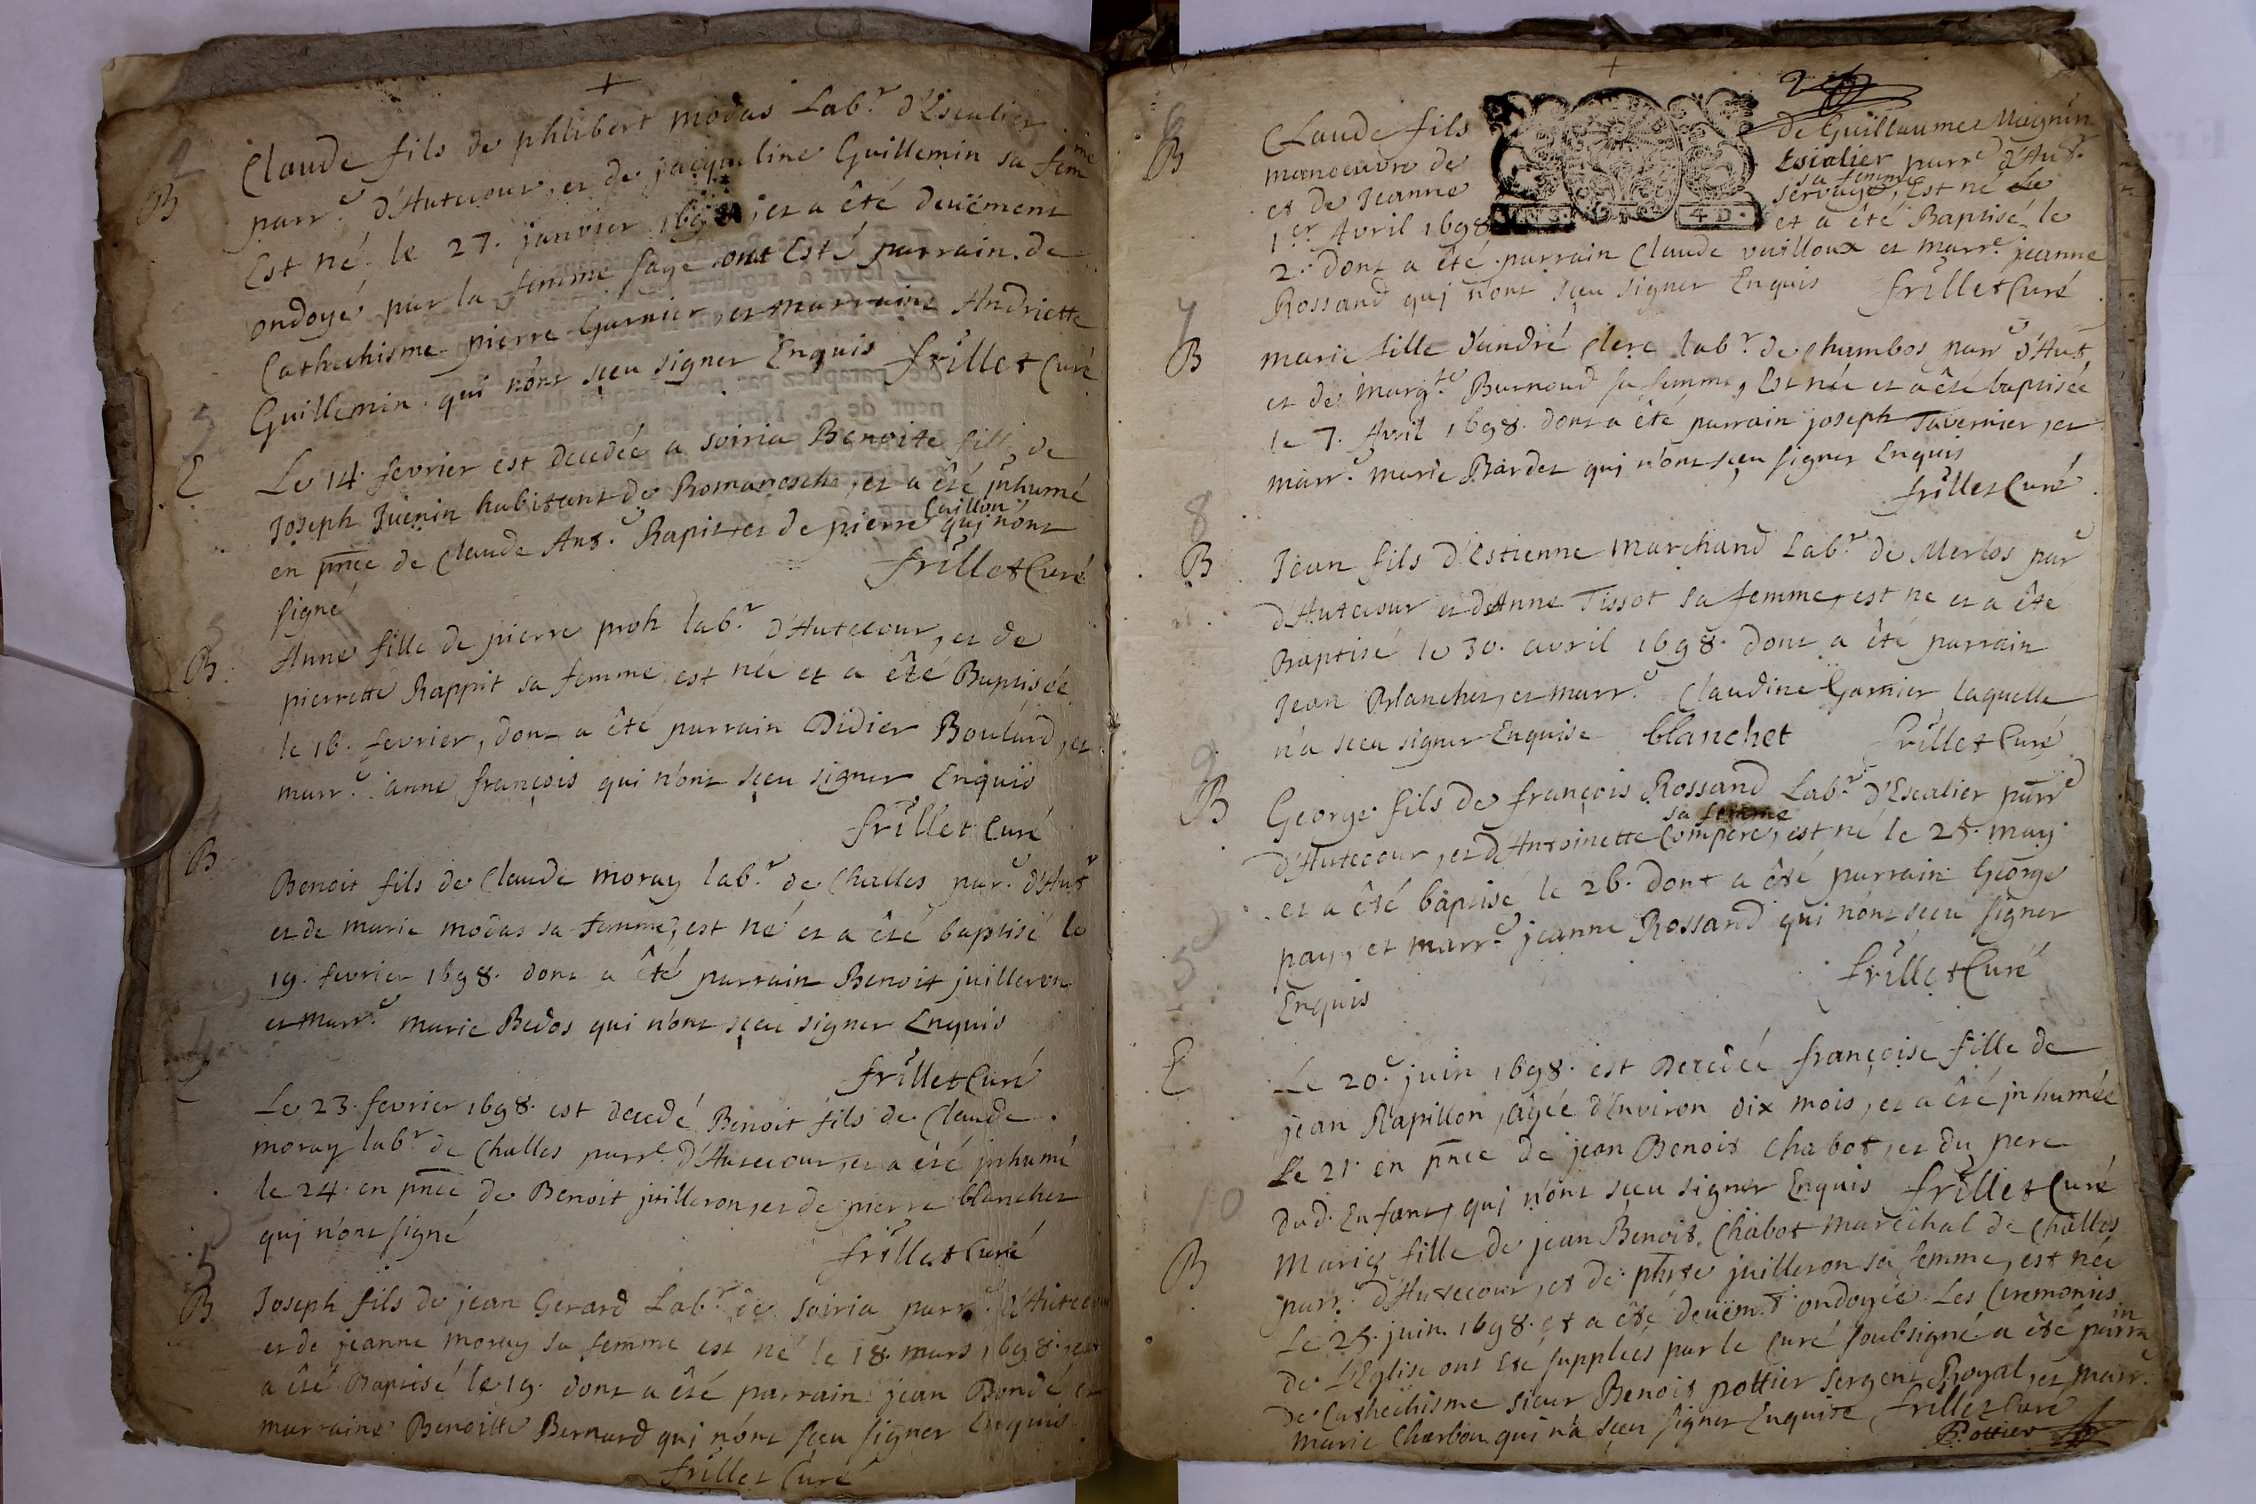 +
2
B
Claude fils de philibert modas Lab.r d'Escalier
parr.e d'Autecour, et de jacqueline Guillemin sa femme
Est né le 27. janvier 1698, et a êté deüement
ondoyé par la femme sage ont Esté parrain de
Cathechisme pierre Garnier, et marraine Andriette
Guillemin qui n'ont sçeu signer Enquis frillet Curé
E
Le 14. fevrier est decedée a soiria Benoite fille de
Joseph Juenin habitant de Romanesche, et a êté inhumé
en pnce de Claude Ant.e Rapit et de pierre Cuillon qui n'ont
signé frillet Curé
3
B
Anne fille de pierre proh lab.r d'Autecour, et de
pierrette Rappit sa femme est née et a êté Baptisée
le 16. fevrier, dont a êté parrain Didier Boulard, et
marr.e anne françois qui n'ont sçeu signer Enquis
frillet Curé
4
B
Benoit fils de Claude moray lab.r de Challes par.e d'Aut.r
et de marie modas sa femme, est né et a êté baptisé le
19. fevrier 1698. dont a êté parrain Benoit juilleron
et marr.e marie Bedos qui n'ont sçeu signer Enquis
frillet Curé
E
Le 23. fevrier 1698. est decedé Benoit fils de Claude
moray lab.r de Challes parr.e d'Autecour, et a êté inhumé
le 24. en pnce de Benoit juilleron, et de pierre blanchet
qui n'ont signé
frillet Curé
5
B
Joseph fils de jean Gerard Lab.r de soiria parr.e d'Autecour
et de jeanne moray sa femme est né le 18. mars 1698. et
a êté Baptisé le 19. dont a êté parrain jean Bondé et
marraine Benoitte Bernard qui n'ont sçeu signer Enquis
frillet Curé
+
2
6
B
CLaude fils de Guillaume Maignin
manoeuvre de Escalier parr.e d'Aut.r
et de Jeanne servage, sa femme Est né Le
1.er Avril 1698 et a êté Baptisé le
4 D.
2. dont a êté parrain Claude vuilloux et marr.e jeanne
Rossand qui n'ont sçeu signer Enquis frillet Curé
7
B
marie fille d'andré Clerc lab.r de chambos parr.e d'Aut.
et de marg.te Burnoud sa femme, Est née et a êté baptisée
le 7. Avril 1698. dont a êté parrain joseph Tavernier, et
marr.e marie Bardet qui n'ont sçeu signer Enquis
frillet Curé
8
B
Jean fils d'Estienne marchand Lab.r de Merlos par.e
d'Autecour et d'Anne Tissot sa femme, est ne et a êté
Baptisé le 30. avril 1698. dont a êté parrain
Jean Blanchet, et marr.e Claudine Garnier, laquelle
n'a sceu signer Enquise blanchet frillet Curé
9
B
George fils de françois Rossand Lab.r d'Escalier parr.e
d'Autecour, et d'Antoinette Compere, sa femme est né le 25. may
et a êté baptisé le 26. dont a êté parrain George
pay, et marr.e jeanne Rossand qui n'ont sçeu signer
Enquis frillet Curé
E
Le 20.e juin 1698. est Decedée françoise fille de
jean Rapillon, âgée d'Environ dix mois, et a êté inhumée
Le 21. en pnce de jean Benoit Chabot, et du pere
dud. Enfant, qui n'ont sçeu signer Enquis frillet Curé
10
B
Marie fille de jean Benoit Chabot maréchal de Challes
parr.e d'Autecour, et de phte juilleron sa femme, est née
Le 25. juin 1698. et a êté deuëm.t ondoyée. Les Ceremonies
de L'Eglise ont Esté supplées par le Curé soubsigné a êté parrain
de Cathechisme sieur Benoit pottier sergent Royal, et marr.e
marie Charbon qui n'a sçeu signer Enquise frillet Curé
Pottier